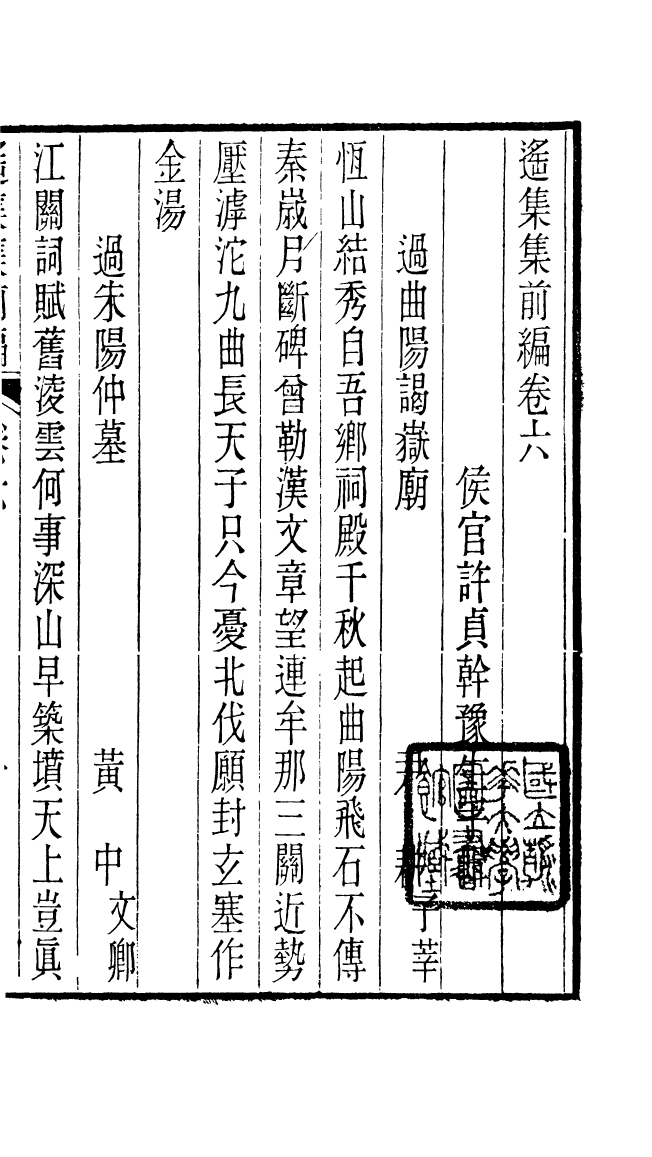 遙集集前編卷六
侯官許貞幹豫生
過曲陽謁嶽廟 尹耕子莘
恆山結秀自吾鄉祠殿千秋起曲陽飛石不傳
秦歲月斷碑曾勒漢文章望連牟那三關近勢
壓滹沱九曲長天子只今憂北伐願封玄塞作
金湯
過朱陽仲墓 黃中文卿
江關詞賦舊淩雲何事深山早築墳天上豈眞